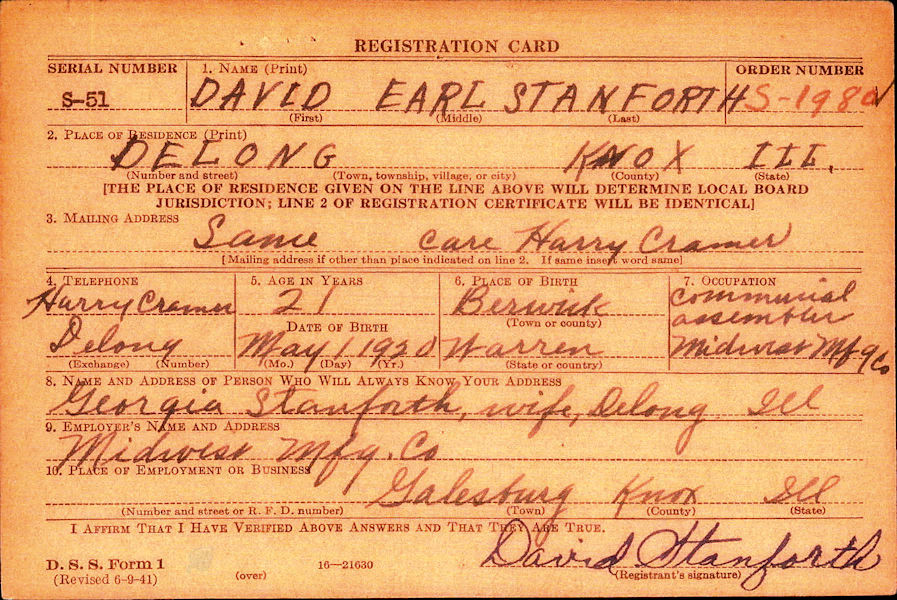 REGISTRATION CARD
SERIAL NUMBER 1. NAME (Print) ORDER NUMBER
S-51 DAVID EARL STANFORTH S-1980
(First) (Middle) (Last)
2. PLACE OF RESIDENCE (Print)
DELONG KNOX ILL.
(Number and street) (Town, township, village, or city) (County) (State)
[THE PLACE OF RESIDENCE GIVEN ON THE LINE ABOVE WILL DETERMINE LOCAL BOARD
JURISDICTION; LINE 2 OF REGISTRATION CERTIFICATE WILL BE IDENTICAL]
3. MAILING ADDRESS
Same care Harry Cramer
[Mailing address if other than place indicated on line 2. If same insert word same]
4. TELEPHONE 5. AGE IN YEARS 6. PLACE OF BIRTH 7. OCCUPATION
Harry Cramer 21 Berwick Commercial
DATE OF BIRTH (Town or county) assembler
Delong May 1 1920 Warren Midwest Mfg Co
(Exchange) (Number) (Mo.) (Day) (Yr.) (State or country)
8. NAME AND ADDRESS OF PERSON WHO WILL ALWAYS KNOW YOUR ADDRESS
Georgia Stanforth, wife, Delong Ill
9. EMPLOYER'S NAME AND ADDRESS
Midwest Mfg. Co
10. PLACE OF EMPLOYMENT OR BUSINESS
Galesburg Knox Ill
(Number and street or R. F. D. number) (Town) (County) (State)
I AFFIRM THAT I HAVE VERIFIED ABOVE ANSWERS AND THAT THEY ARE TRUE.
David Stanforth
D. S. S. Form 1
(Revised 6-9-41) (over) 16—21630 (Registrant's signature)